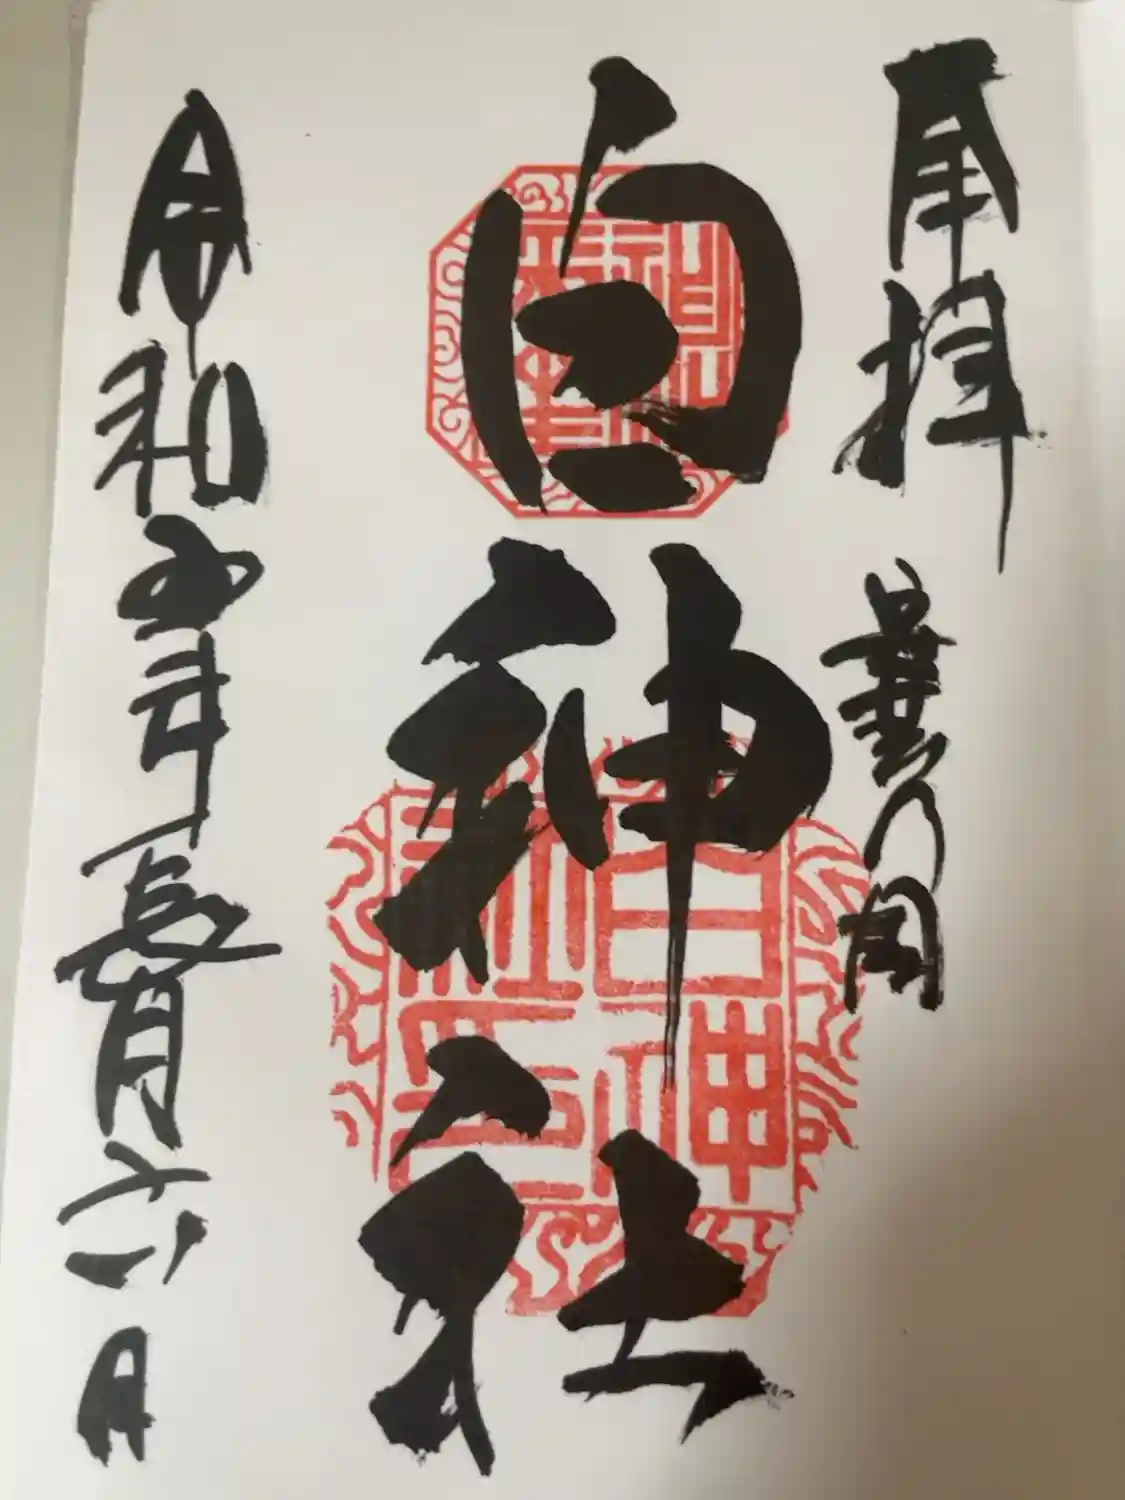 奉拝
白神社
令和五年長月六日
白神社印